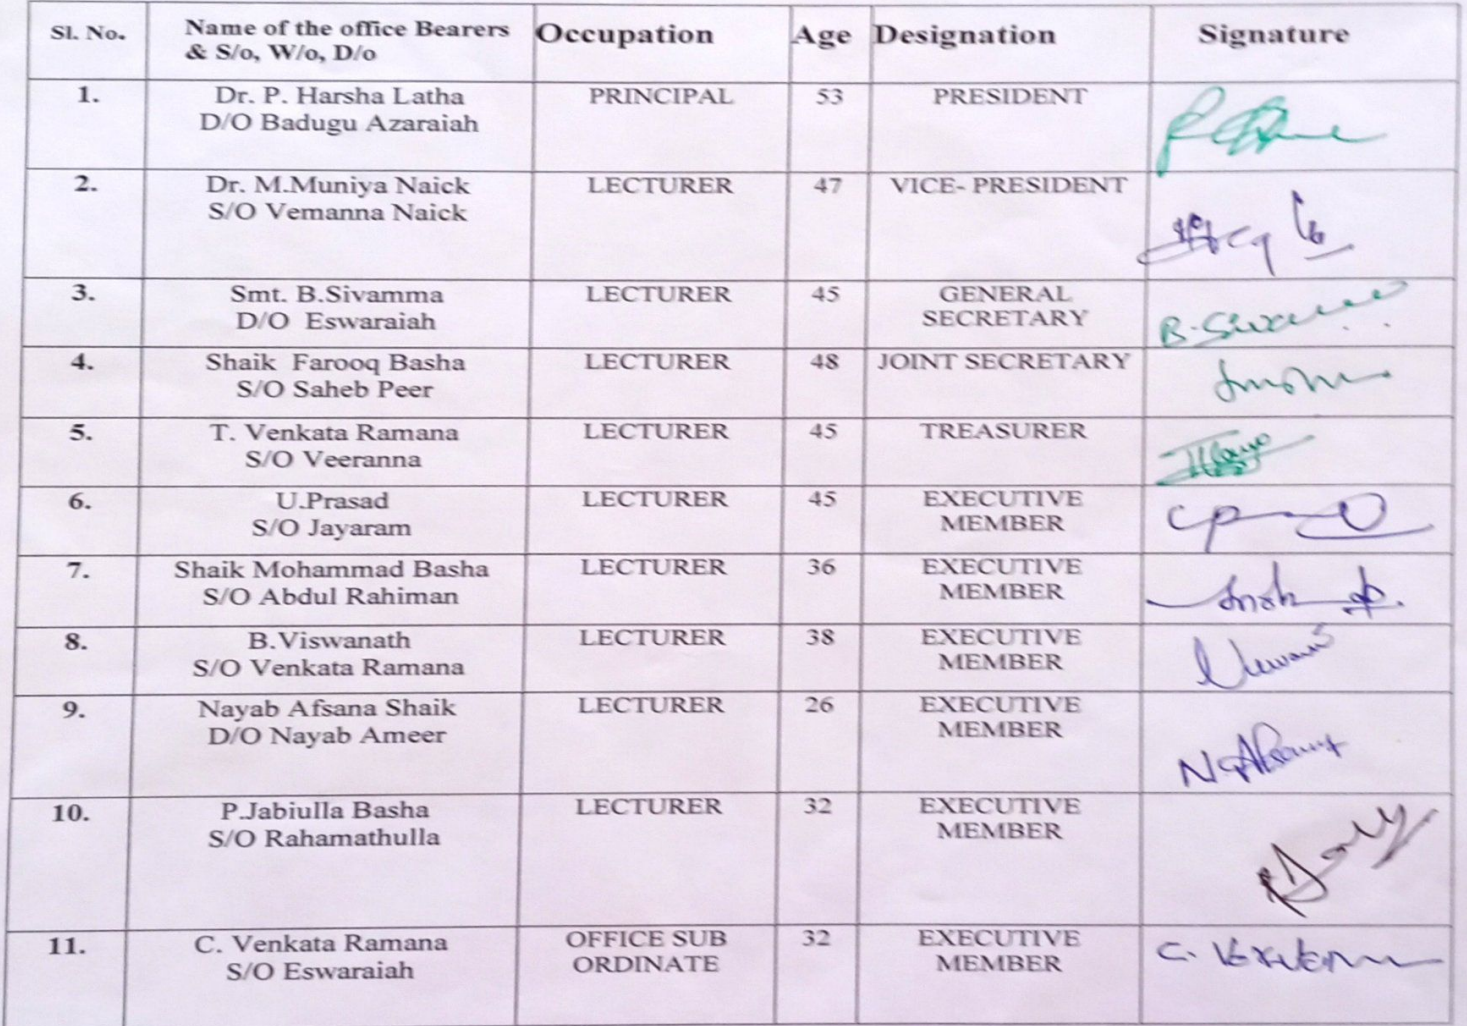 Sl. No.
Name of the office Bearers
& S/o, W/o, D/o
Occupation
Age
Designation
Signature
1.
Dr. P. Harsha Latha
D/O Badugu Azaraiah
PRINCIPAL
53
PRESIDENT
2.
Dr. M.Muniya Naick
S/O Vemanna Naick
LECTURER
47
VICE- PRESIDENT
3.
Smt. B.Sivamma
D/O Eswaraiah
LECTURER
45
GENERAL
SECRETARY
4.
Shaik Farooq Basha
S/O Saheb Peer
LECTURER
48
JOINT SECRETARY
5.
T. Venkata Ramana
S/O Veeranna
LECTURER
45
TREASURER
6.
U.Prasad
S/O Jayaram
LECTURER
45
EXECUTIVE
MEMBER
7.
Shaik Mohammad Basha
S/O Abdul Rahiman
LECTURER
36
EXECUTIVE
MEMBER
8.
B.Viswanath
S/O Venkata Ramana
LECTURER
38
EXECUTIVE
MEMBER
9.
Nayab Afsana Shaik
D/O Nayab Ameer
LECTURER
26
EXECUTIVE
MEMBER
10.
P.Jabiulla Basha
S/O Rahamathulla
LECTURER
32
EXECUTIVE
MEMBER
11.
C. Venkata Ramana
S/O Eswaraiah
OFFICE SUB
ORDINATE
32
EXECUTIVE
MEMBER